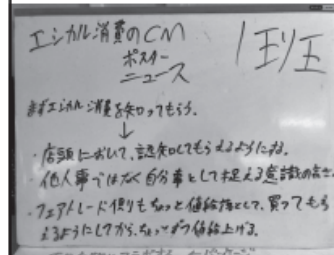 エシカル消費のCM
ポスター
ニュース
1班
まずエシカル消費を知ってもらう。
↓
・店頭において、認知してもらえるようにする。
他人事ではなく自分事として捉える意識の
・フェアトレード側もちょっと値段落として、買ってもら
えるようにしてから、ちょっとずつ値段上げる。